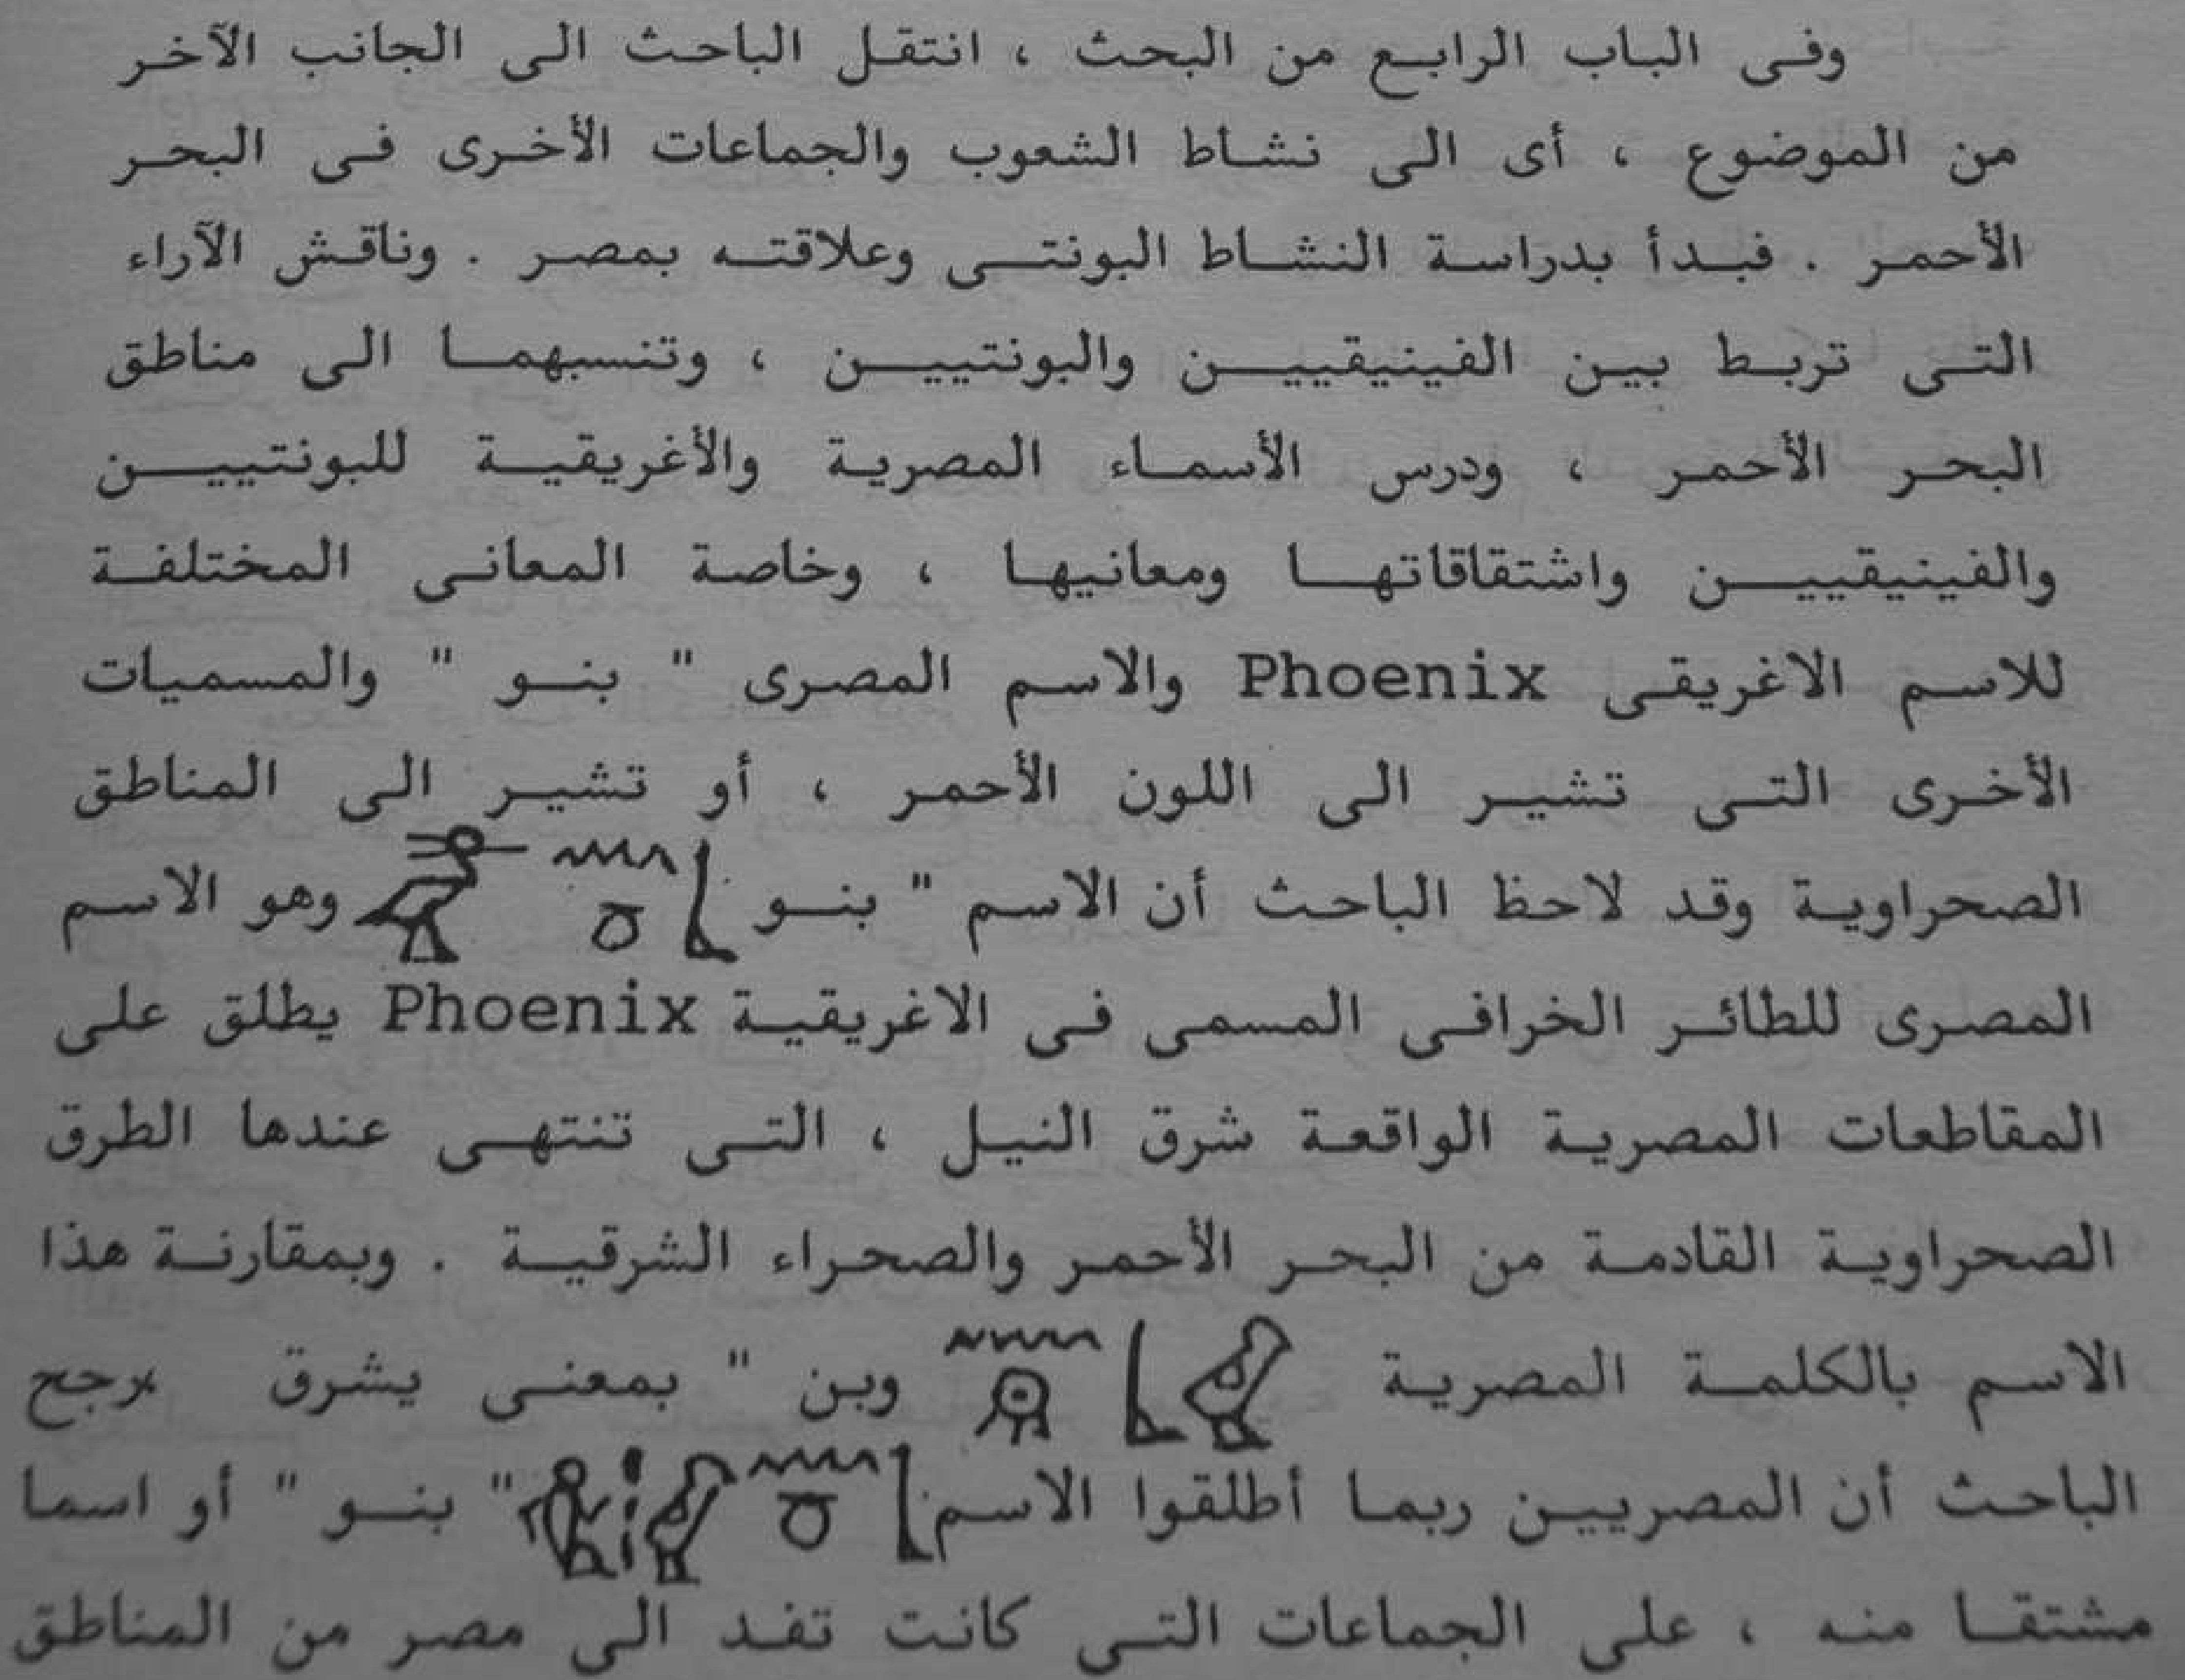 وفى الباب الرابع من البحث ، انتقل الباحث الى الجانب الآخر
من الموضوع ، أى الى نشاط الشعوب والجماعات الأخرى فى البحر
الأحمر . فبدأ بدراسة النشاط البونتى وعلاقته بمصر . وناقش الآراء
التى تربط بين الفينيقيين والبونتيين ، وتنسبهما الى مناطق
البحر الأحمر ، ودرس الأسماء المصرية والأغريقية للبونتيين
والفينيقيين واشتقاقاتها ومعانيها ، وخاصة المعانى المختلفة
للاسم الاغريقى Phoenix والاسم المصرى " بنو " والمسميات
الأخرى التى تشير الى اللون الأحمر ، أو تشير الى المناطق
الصحراوية وقد لاحظ الباحث أن الاسم " بنو وهو الاسم
المصرى للطائر الخرافى المسمى فى الاغريقية Phoenix يطلق على
المقاطعات المصرية الواقعة شرق النيل ، التى تنتهى عندها الطرق
الصحراوية القادمة من البحر الأحمر والصحراء الشرقية . وبمقارنة هذا
الاسم بالكلمة المصرية وبن " بمعنى يشرق يرجح
الباحث أن المصريين ربما أطلقوا الاسم " بنو " أو اسما
مشتقا منه ، على الجماعات التى كانت تفد الى مصر من المناطق